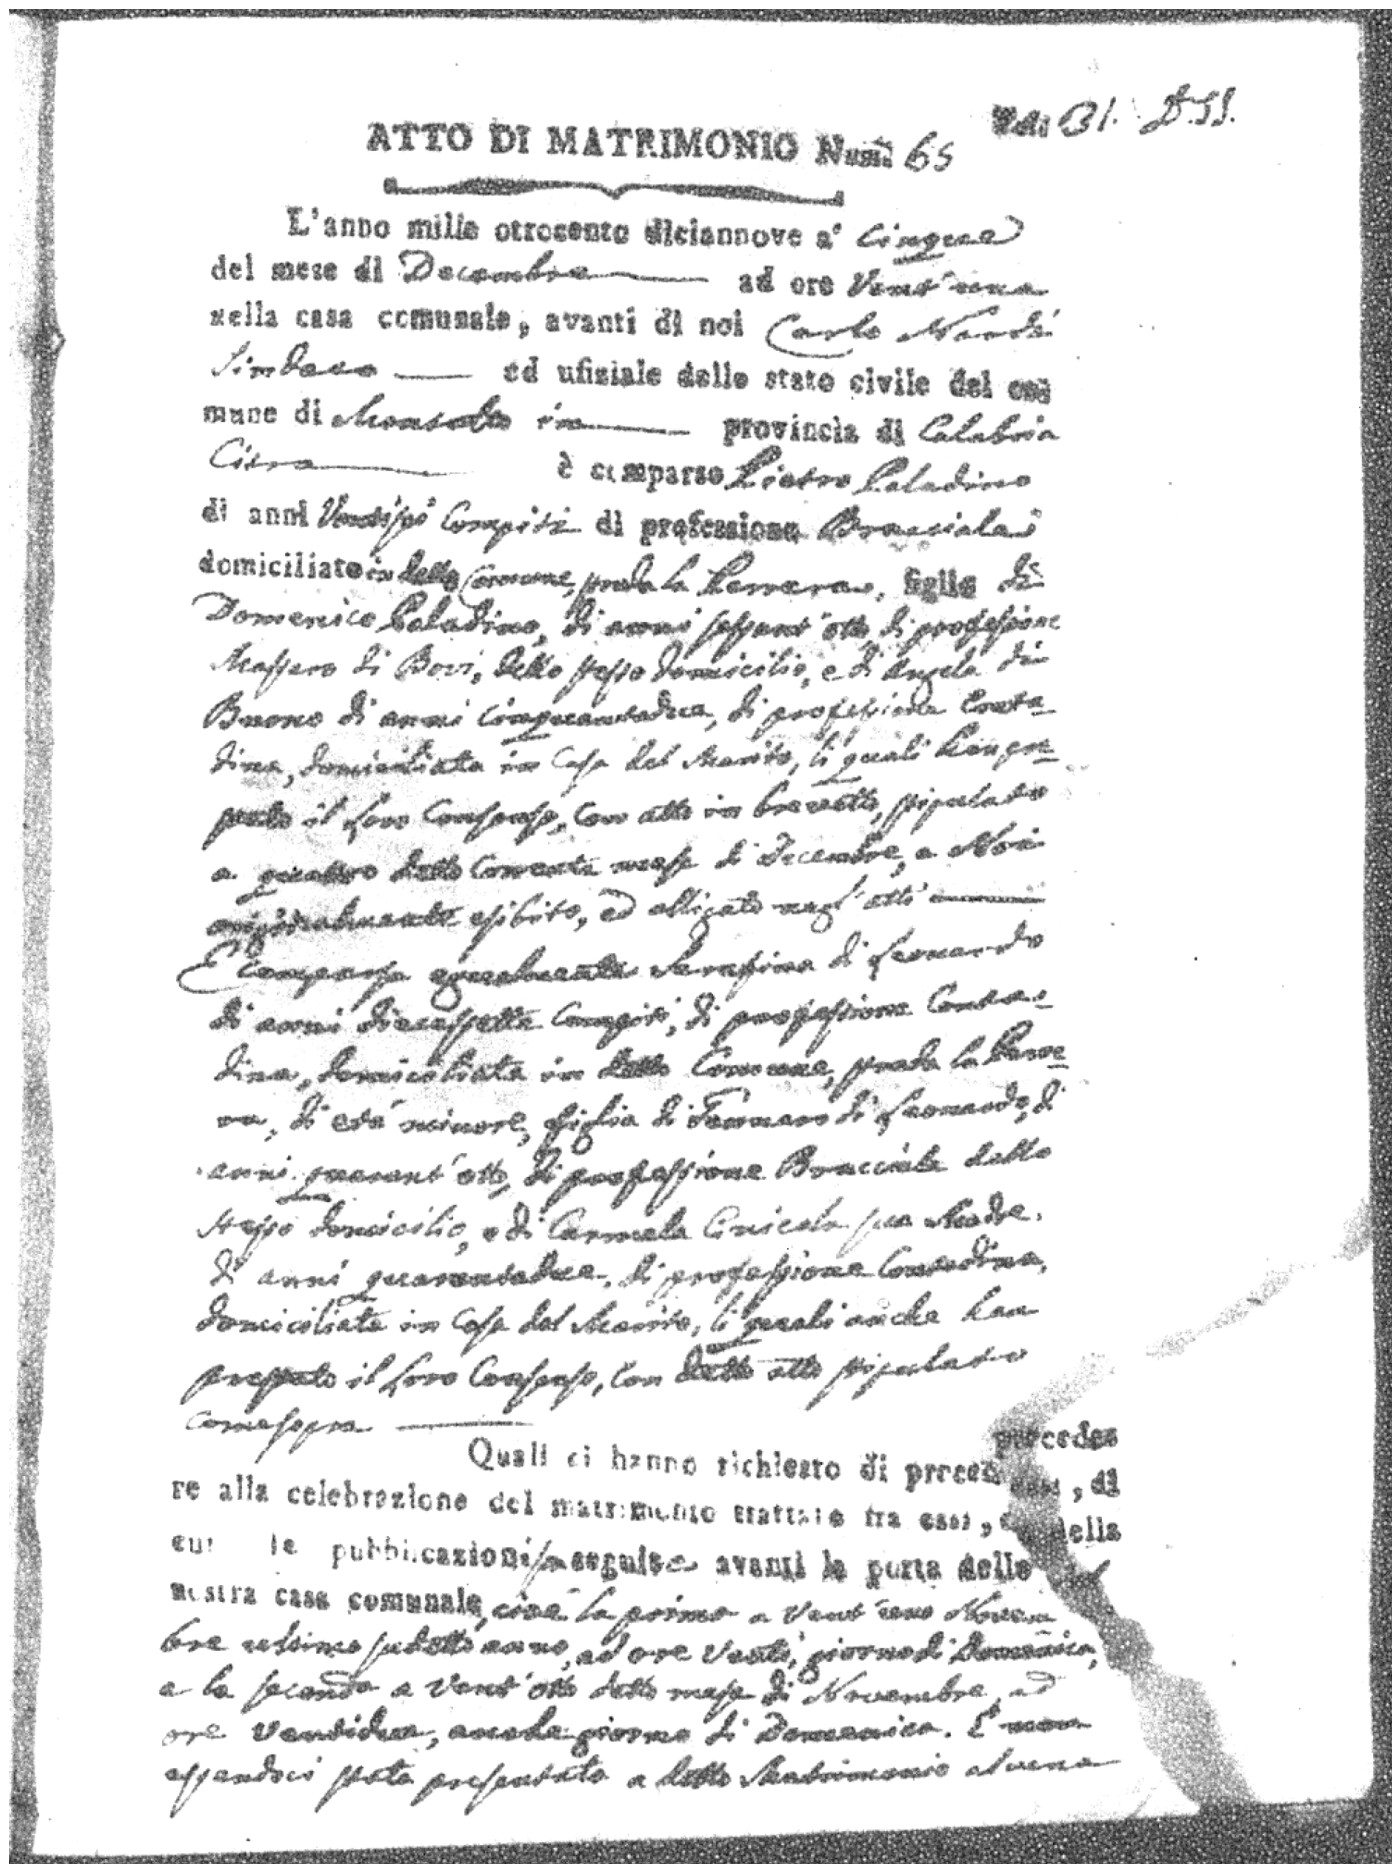 ATTO DI MATRIMONIO Num. 65
31.
L'anno mille ottocento diciannove a' Cinque
del mese di Decembre ad ore Vent'una
nella casa comunale, avanti di noi Carlo Nardi
Sindaco ed ufiziale dello stato civile del co
mune di Montalto in provincia di Calabria
Citra è comparso Pietro Paladino
di anni Ventisei Compiti di professione Bracciale
domiciliato in detto Comune, strada la Perrera, figlio di
Domenico Paladino, di anni sessant'otto, di professione
Massaro di Bovi, dello stesso domicilio, e di Angela di
Buono di anni Cinquantadue, di professione Conta-
dina, domiciliata in Casa del Marito, li quali han pre-
stato il loro Consenso, con atto in brevetto, stipulato
a quattro detto Corrente mese di Decembre, a Noi
originalmente esibito, ed alligato negl'atti
E Comparsa egualmente Serafina di Leonardo
di anni diecessette Compiti, di professione Conta-
dina, domiciliata in detto Comune, strada la Perre-
ra, di età minore, figlia di Gennaro di Leonardo, di
anni quarant'otto, di professione Bracciale dello
stesso domicilio, e di Carmela sua Madre,
di anni quarantadue, di professione Contadina,
domiciliata in Casa del Marito, li quali anche han
prestato il loro Consenso, con detto atto stipulato
come sopra
Quali ci hanno richiesto di procede
re alla celebrazione del matrimonio trattato tra essi, di
cui le pubblicazioni seguite avanti la porta della
nostra casa comunale, cioè la prima a Vent'uno Novem
bre ultimo sudetto anno, ad ore Venti, giorno di Domenica,
e la seconda a Vent'otto detto mese di Novembre, ad
ore Ventidue, anche giorno di Domenica. E non
essendoci stata presentata a detto Matrimonio alcuna